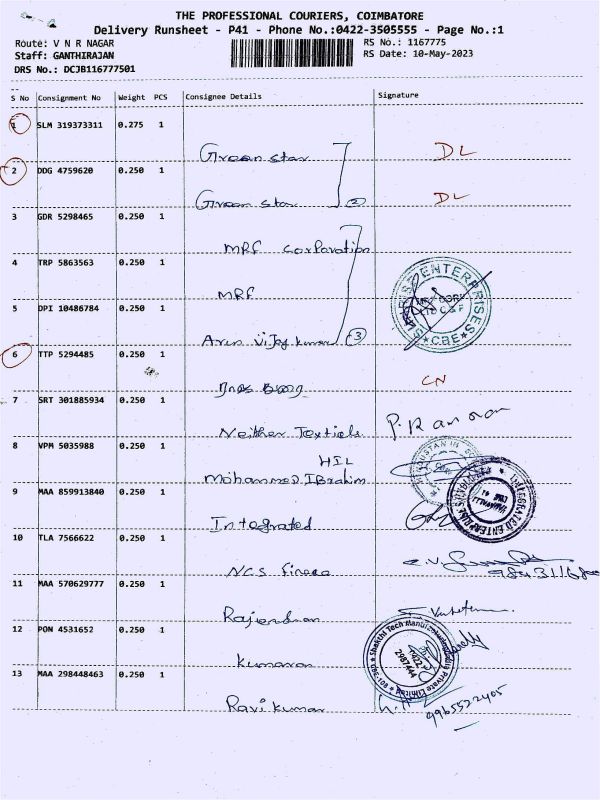 THE PROFESSIONAL COURIERS, COIMBATORE
Delivery Runsheet - P41 - Phone No.:0422-3505555 - Page No.:1
Route: V N R NAGAR RS No.: 1167775
Staff: GANTHIRAJAN RS Date: 10-May-2023
DRS No.: DCJB116777501
S No Consignment No Weight PCS Consignee Details Signature
1 SLM 319373311 0.275 1
Green star DL
2 DDG 4759620 0.250 1
Green star 2 DL
3 GDR 5298465 0.250 1
MRF Corporation
4 TRP 5863563 0.250 1
MRF
ENTERPRISES
CBE
5 DPI 10486784 0.250 1
Arun Vijay kumar 3
6 TTP 5294485 0.250 1
CN
7 SRT 301885934 0.250 1
8 VPM 5035988 0.250 1
HIL
Mohammed IBrahim
9 MAA 859913840 0.250 1
Integrated
INTEGRATED ENTERPRISES
10 TLA 7566622 0.250 1
NCS
11 MAA 570629777 0.250 1
Rajendran
12 PON 4531652 0.250 1
Kumaran
Shakthi Tech Manufacturing India Private Limited
0422
2987444
13 MAA 298448463 0.250 1
Ravi kumar 9965522405